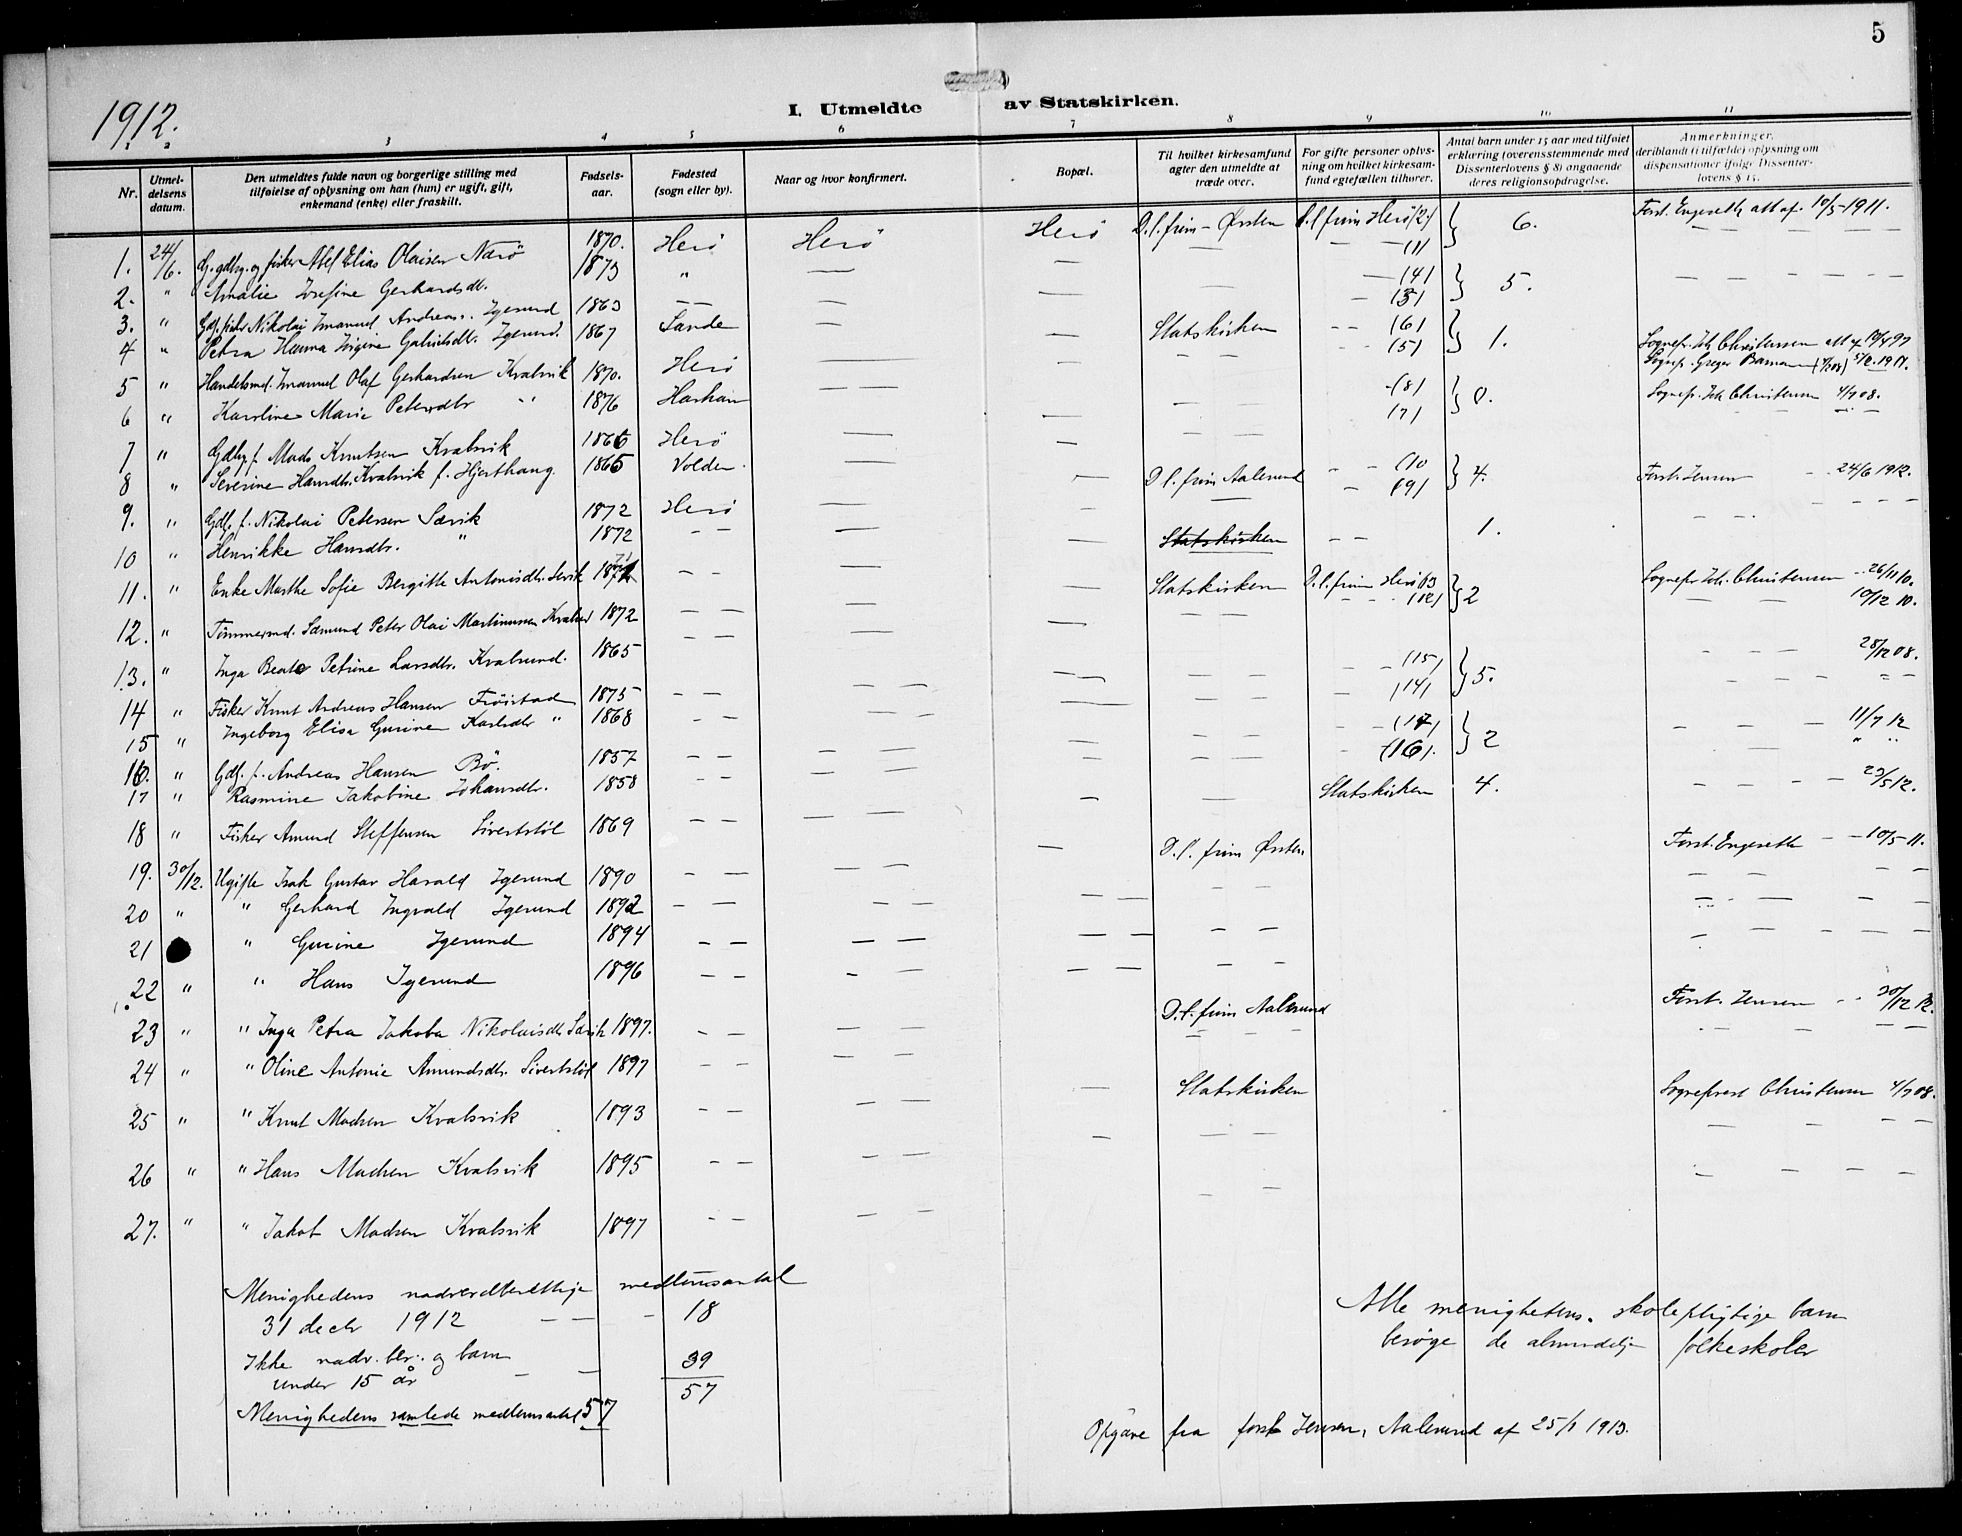 5
1912.
I. Utmeldte av Statskirken.
3 4 5 6 7 8 9 10 11
Nr.
Utmel-
delsens
datum.
Den utmeldtes fulde navn og borgerlige stilling med
tilføielse af oplysning om han (hun) er ugift, gift,
enkemand (enke) eller fraskilt.
Fødsels-
aar.
Fødested
(sogn eller by).
Naar og hvor konfirmert.
Bopæl.
Til hvilket kirkesamfund
agter den utmeldte at
træde over.
For gifte personer oplys-
ning om hvilket kirkesam-
fund egtefællen tilhører.
Antal barn under 15 aar med tilføiet
erklæring (overensstemmende med
Dissenterlovens § 8) angaaende
deres religionsopdragelse.
Anmerkninger,
deriblandt (i tilfælde) oplysning om
dispensationer ifølge Dissenter-
lovens § 15.
1. 24/6. G. gdbr. og fisker Abel Elias Olaisen Nærö 1870. Herö Herö Herö D. l. frim - Örsten D. l. frim Herö (2) 6. Forst. Engeseth att af. 10/5-1911.
2. " Amalie Josefine Gerhardsdtr. 1873 " — — — — — (1) — — — —
3. " Gdf. fisker Nikolai Imanuel Andreas. Igesund 1863 — — — — — — (4) 5. — — — — —
4 " Petra Hanna Jörgine Gabrielsdtr. Igesund. 1867 Sande — — — — (3)
5 " Handelsmd. Imanuel Olaf Gerhardsen Kvalsvik 1870. Herö — — Statskirken — — (6) 1. Sognepr. Joh Christensen att af 19/4 97
6 " Karoline Marie Petersdtr " 1876 Harham — — — — — (5) Sognepr. Greger
7 " Gdbr. f. Mads Knutsen Kvalsvik 1866 Herö — — — — — (8) 0. Sognepr. Joh Christensen 4/7 08.
8 " Severine Hansdtr. Kvalsvik f. Hjorthaug. 1865 Volden. — — — — (7) — — —
9. " Gdf. f. Nikolai Petersen Særvik 1872 Herö — — D l. frim Aalesund — — (10 4. Forst. Jensen — 24/6 1912.
10 " Henrikke Hansdtr. " 1872 — — — — — — (9) — — — — —
11. " Enke Marthe Sofie Bergitte Antonisdtr. Sævik 1871 — — — — Statskirken — — 1.
12. " Tömmermd. Sæmund Peter Olai Martinussen Kvalsund 1872 — — — — Statskirken D. l. frim Herö (13 2 Sognepr. Joh. Christensen - 26/11 10.
13. " Inga Beate Petrine Larsdtr. Kvalsund. 1865 — — — — — — — (12) — — 10/12 10.
14 " Fisker Knut Andreas Hansen Fröistad 1875 — — — — — — — — (15) 5. — — — 28/12 08.
15 " Ingeborg Elisa Gurine Karlsdtr " 1868 — — — — — — — — (14) — — — — —
16. " Gdf. f. Andreas Hansen Bö. 1857 — — — — — — — — (17) 2 — — — 11/7 12
17 " Rasmine Jakobine Johansdtr. 1858 — — — — — — — — (16). " "
18 " Fisker Amund Steffensen Sivertstöl 1869 — — — — — — Statskirken 4. — — — 23/5 12.
19. 30/12. Ugifte Isak Gustav Harald Igesund 1890 — — — — D. l. frim Örsten Forst. Engeseth — — 10/5-11.
20 " " Gerhard Ingvald Igesund 1892 — — — — — — — — — — — —
21 " Gurine Igesund 1894 — — — — — — — — — — — — —
22 " " Hans Igesund 1896 — — — — — — — — — — — — —
23 " " Inga Petra Jakoba Nikolaisdtr Særvik 1897. — — — — D. l. frim Aalesund Forst. Jensen — 30/12 12.
24 " " Oline Antonie Amundsdtr. Sivertstöl 1897 — — — — — — — — — —
25 " " Knut Madsen Kvalsvik 1893 — — — — — Statskirken Sogneprest Christensen 4/7 08.
26 " " Hans Madsen Kvalsvik 1895 — — — — — — — — — — —
27. " " Jakob Madsen Kvalsvik 1897 — — — — — — — — — —
Menighedens nadverdberettige medlemsantal
31 decbr 1912 — — - 18
Ikke nadv. ber. og barn
under 15 år — — 39
57
Menighedens samlede medlemsantal 57
Alle menighetens. skolepligtige barn
besøge de almindelige folkeskoler
Opgave fra forst Jensen, Aalesund af 25/1 1913.